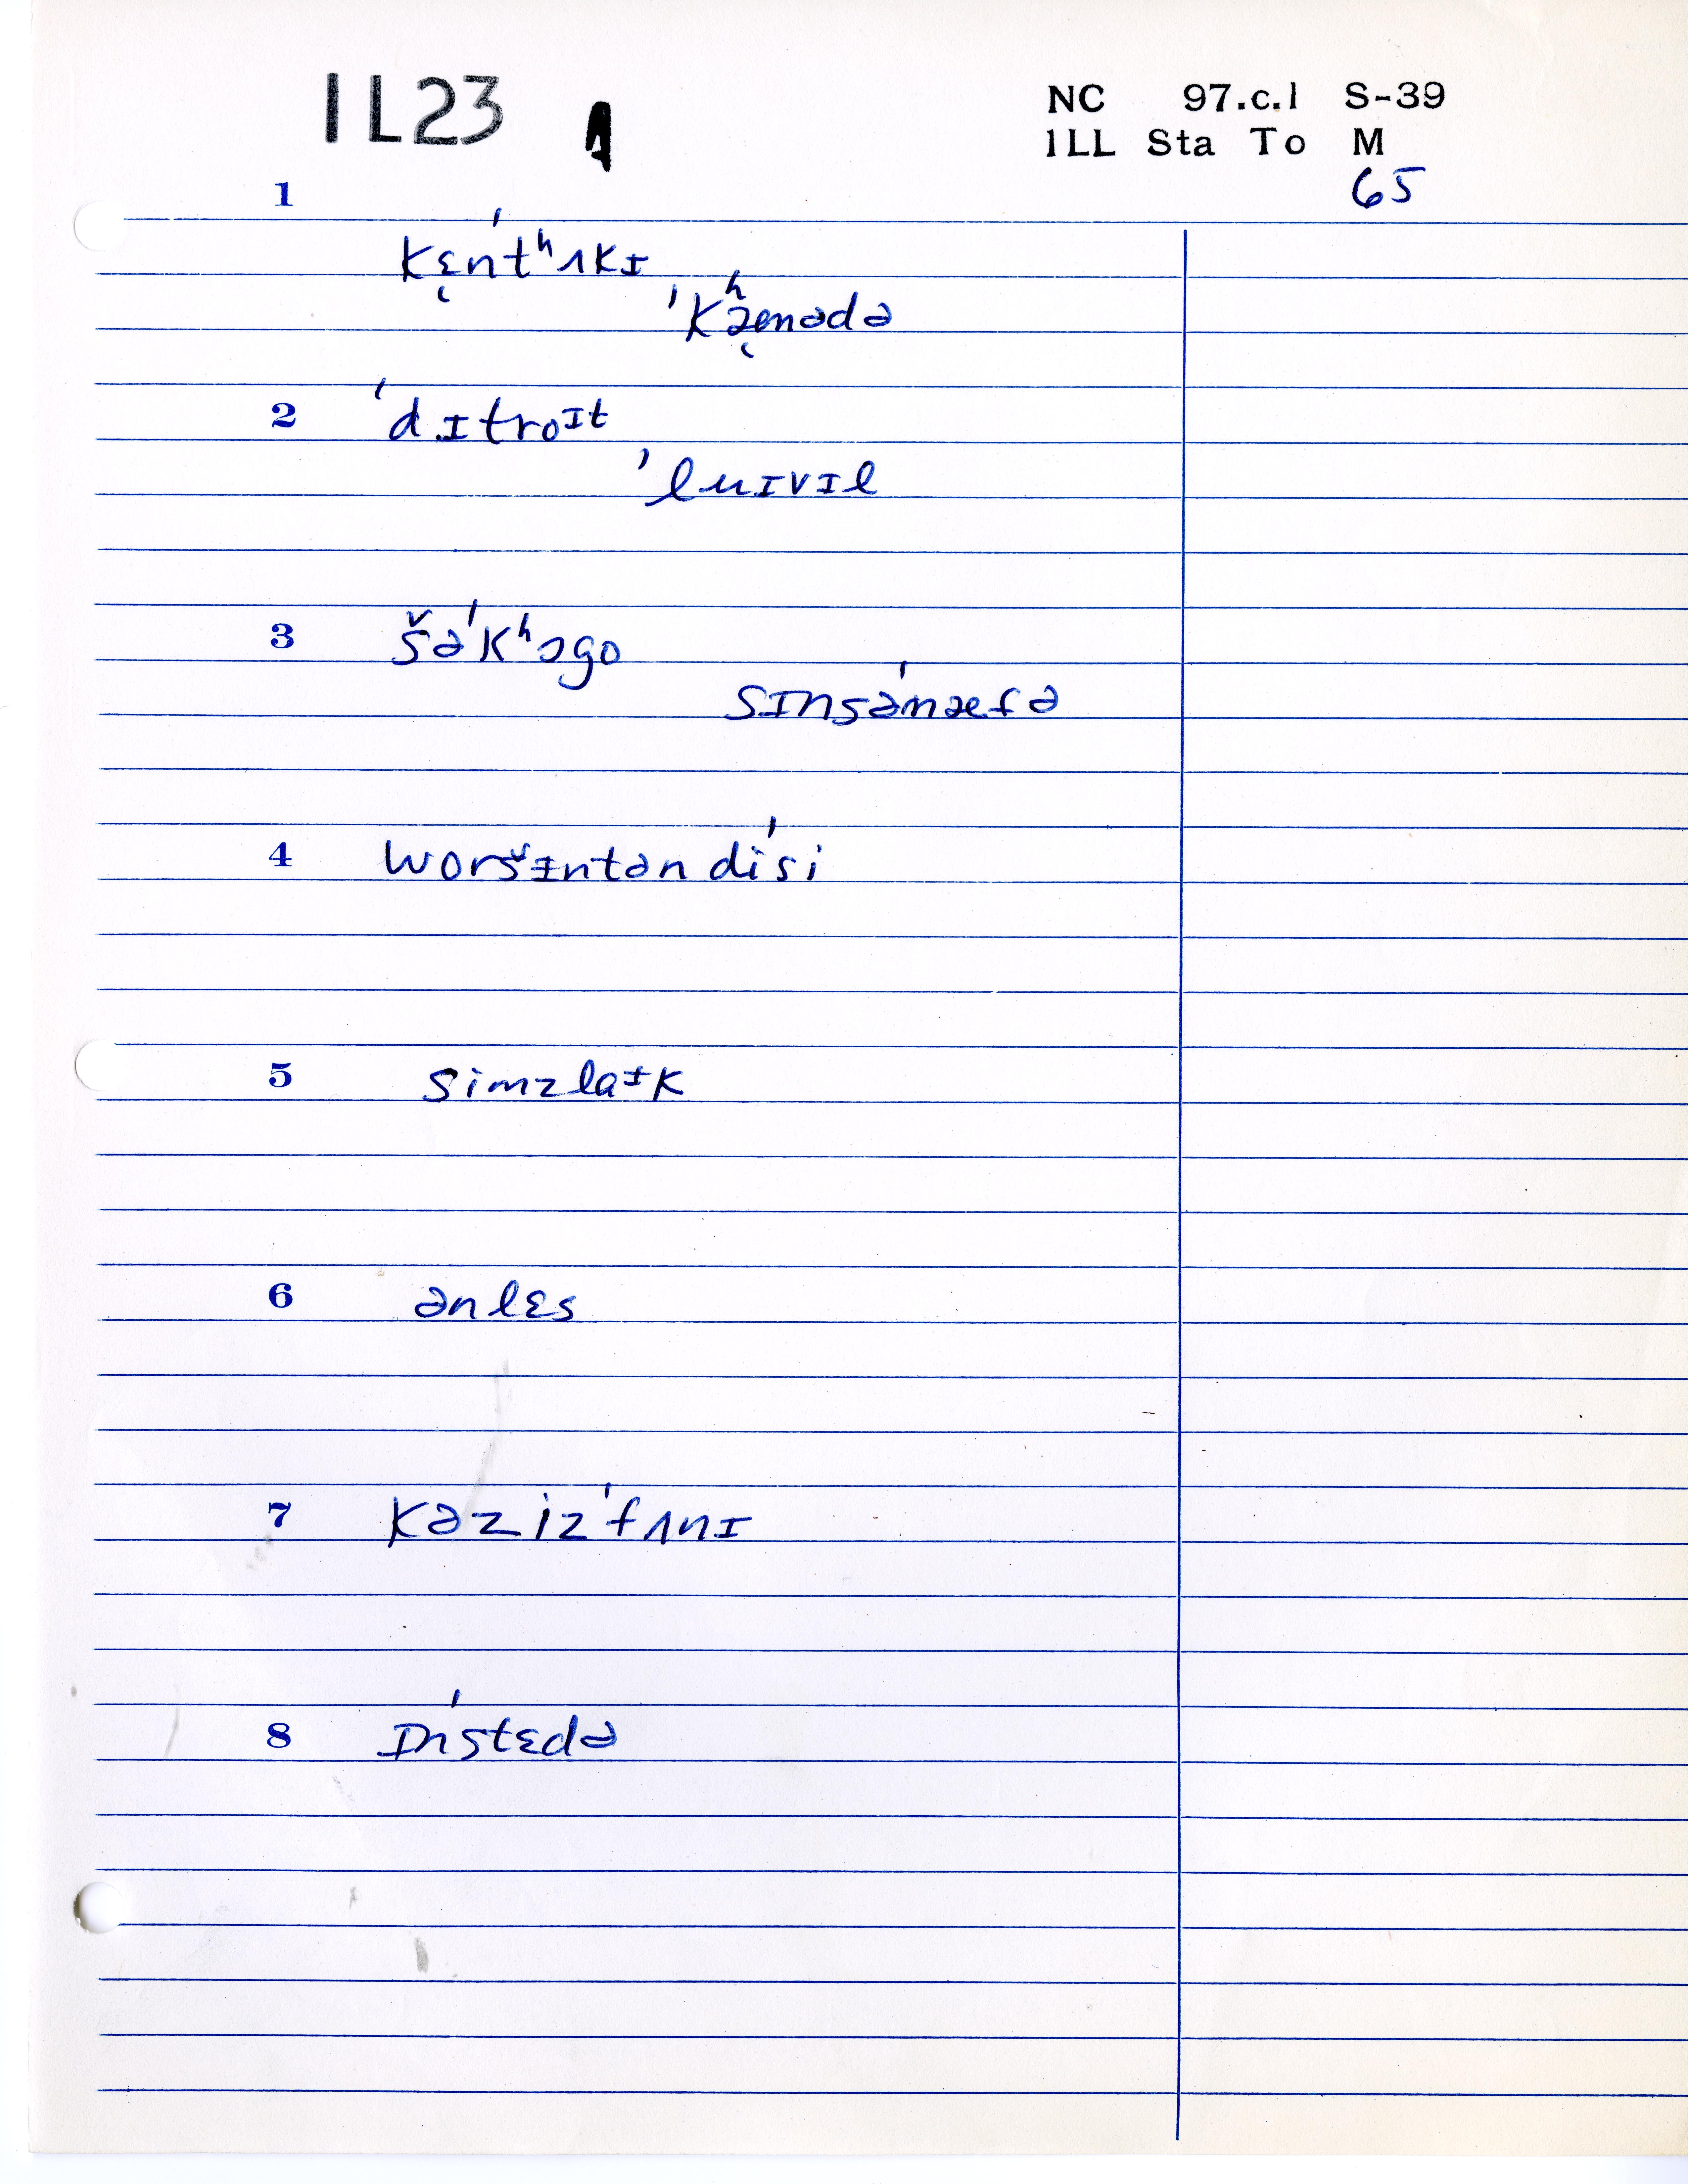 1L23 A
NC 97.c.1 S-39
1LL Sta To M
65
1
kɛ̨n'tʰʌkɪ
'kʰæ̨nədə
2 'dɪtroɪt
'luɪvɪl
3 šə'kʰɔgo
sɪnsə'næɾə
4 woršɪntən di'si
5 simzlaɪk
6 ənlɛs
7 kəziz'fʌnɪ
8 ɪn'stɛdə